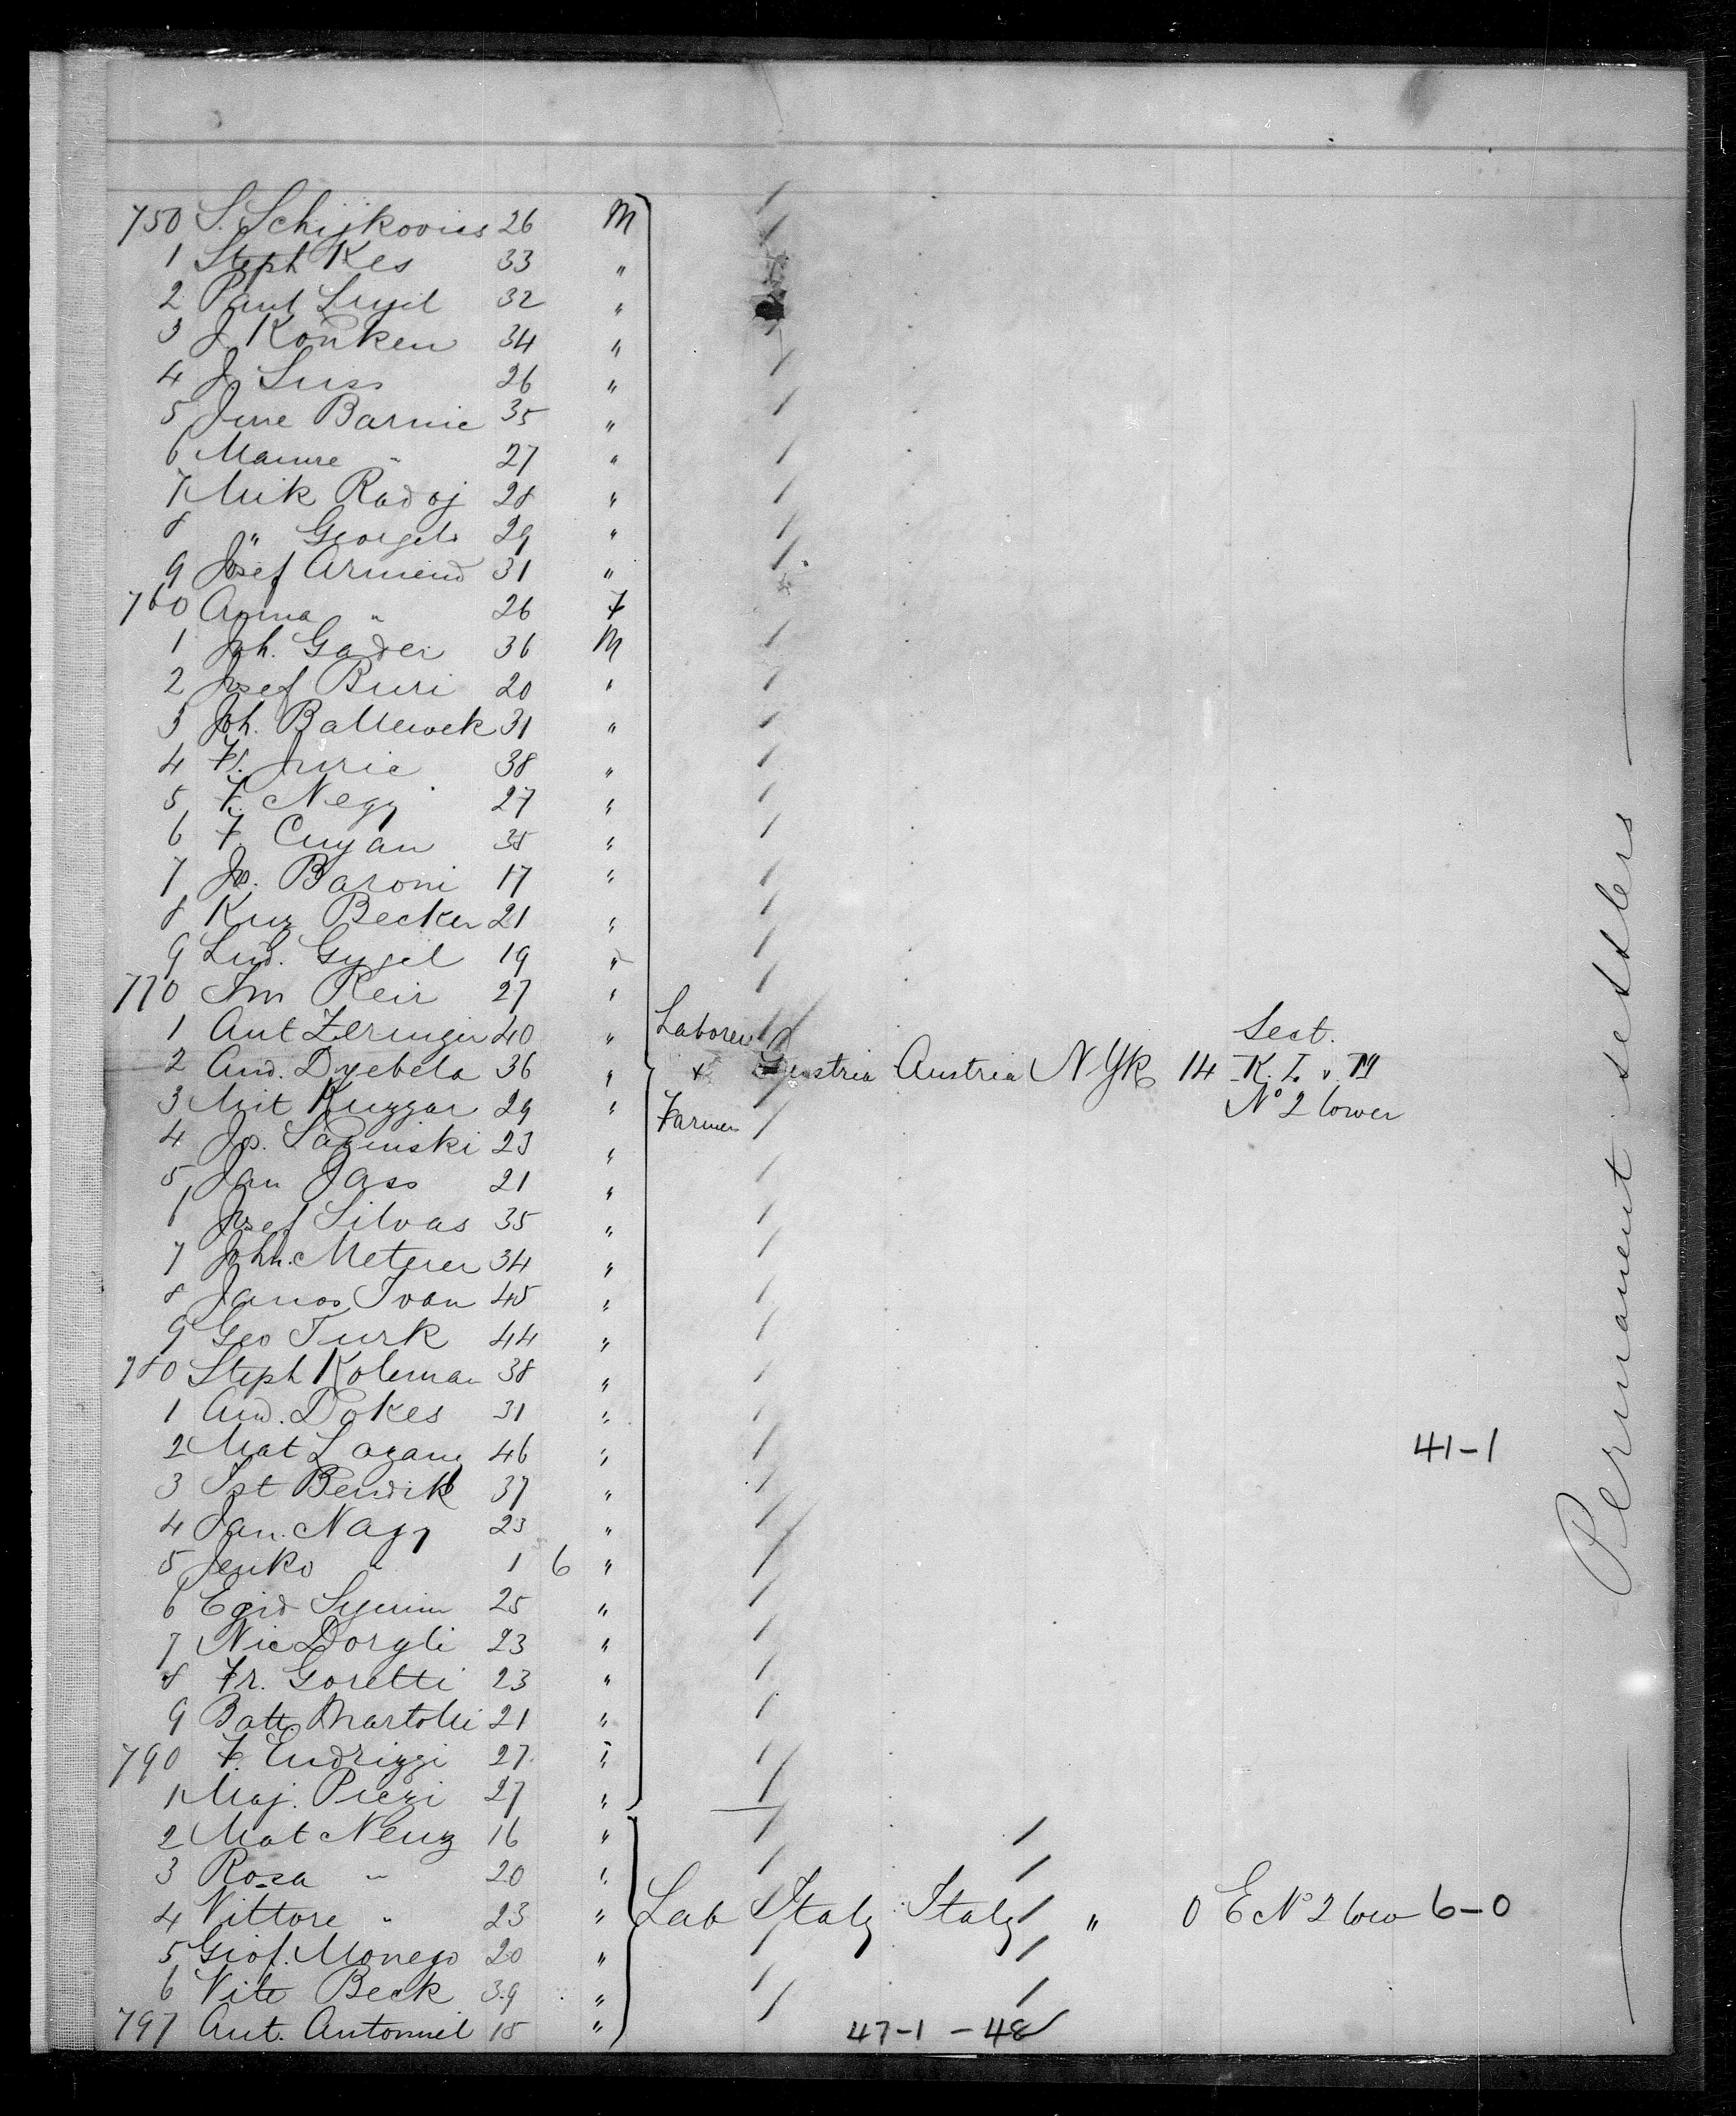 750 S. Schijkovics 26 M
1 Steph Kes 33 "
2 Paul 32 "
3 J Konken 34 "
4 J Suss 26 "
5 Barnic 35 "
6 " 27 "
7 Mik Radoj 28 "
8 " 29 "
9 Josef Armend 31 "
760 Anna " 26 F
1 Joh. Gader 36 M
2 Josef Buri 20 "
3 Joh. 31 "
4 Fr. Juric 38 "
5 F. Negy 27 "
6 F. 35 "
7 Jos. Baroni 17 "
8 Becker 21 "
9 Lud. 19 "
770 27 "
1 Ant Zeringer 40 " Laborer Sect.
2 And. Dyebela 36 " + Austria Austria N Yk 14 K. L. M
3 Mit Kuzgar 29 " Farmer No 2 lower
4 Jos. 23 "
5 Jan Jass 21 "
6 Josef Silvas 35 "
7 John. Meterer 34 "
8 Janos Ivan 45 "
9 Geo Turk 44 "
780 Steph Koleman 38 "
1 And. Dokes 31 "
2 Mat 46 " 41-1
3 Ist Bendik 37 "
4 Jan. Nagy 23 "
5 Jenko " 1 6 "
6 Egid 25 "
7 Nic 23 "
8 Fr. Goretti 23 "
9 Batt. 21 "
790 F. Endrizzi 27 "
1 Maj. Piezi 27 "
2 Mat 16 "
3 Rosa " 20 "
4 Vittore " 23 " Lab Italy Italy " 0 E No 2 low 6-0
5 Giof. Monego 20 "
6 Vito Beck 39 "
797 Ant. 15 "
47-1 - 48
Permanent settlers